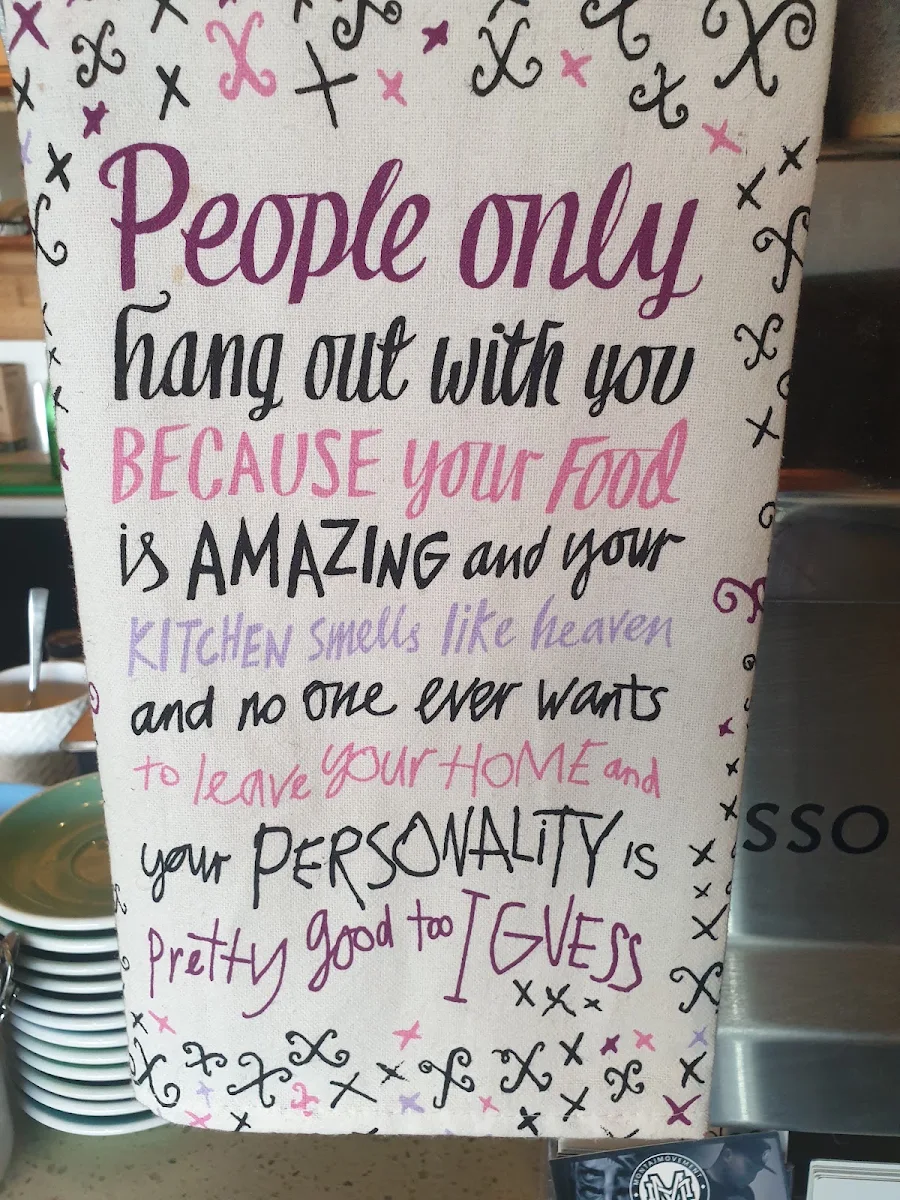 People only
hang out with you
BECAUSE your Food
is AMAZING and your
KITCHEN smells like heaven
and no one ever wants
to leave your HOME and
your PERSONALITY is
pretty good too I GUESS
xxx
SSO
MONTAIMOVEMENT
M